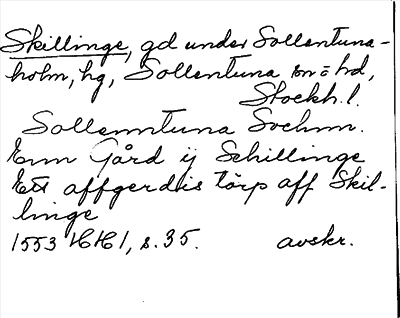 Skillinge, gd under Sollentuna-
holm, hg, Sollentuna sn o hd,
Stockh. l.
Sollenntuna Sochnn.
Enn Gård ij Schillinge
Ett affgerdis torp aff Skil-
linge
1553 HH1, s. 35. avskr.